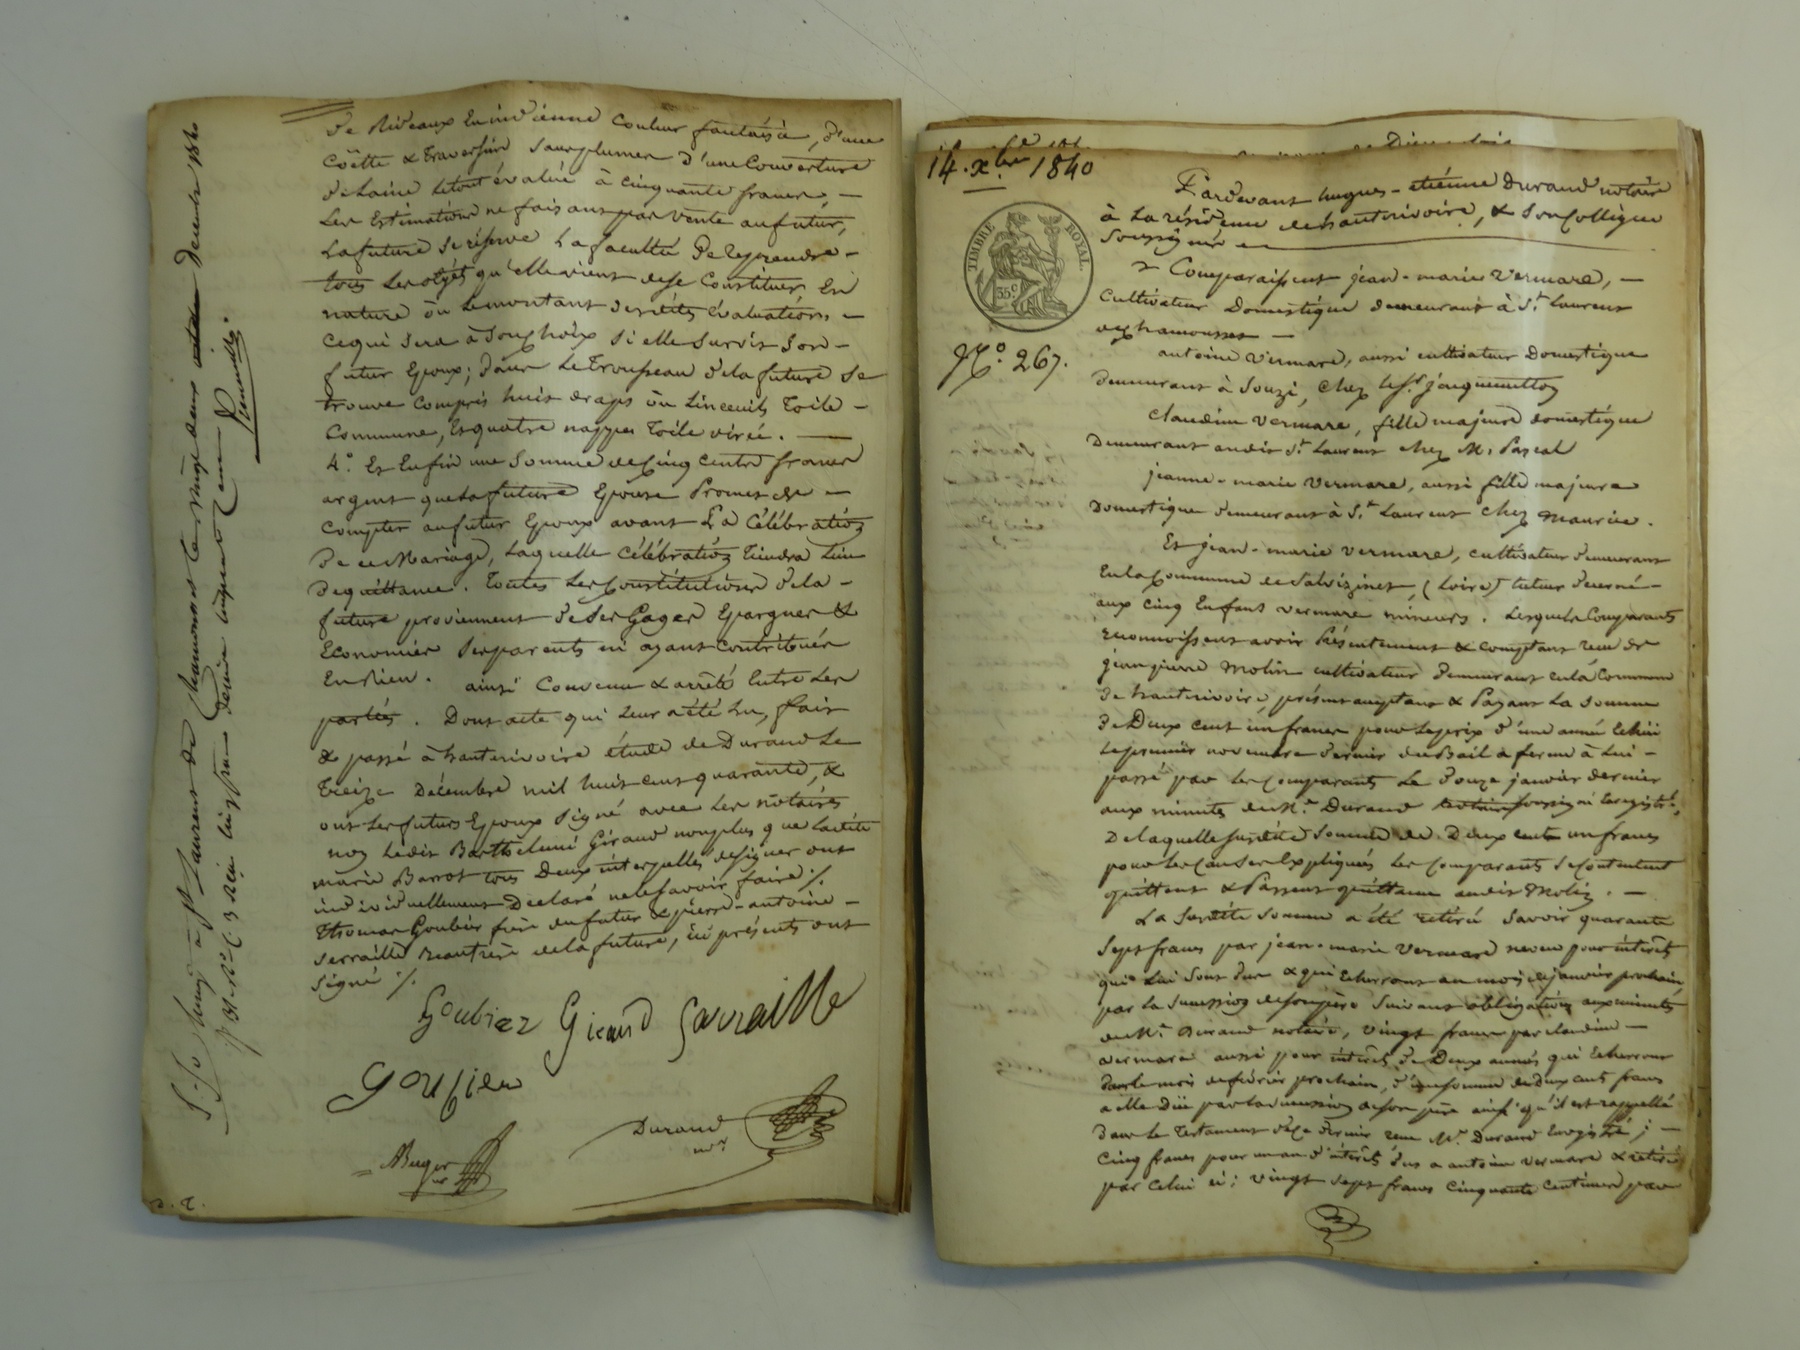 de Rideaux en indienne Couleur fantaisie, d'une
Coëtte & traversin Sans plumes d'une Couverture
de Laine le tout évalué à cinquante francs, —
Les Estimations ne faisant pas vente au futur,
La future Se réserve La faculté de reprendre —
tous Les objets qu'elle vient de se Constituer En
nature ou Le montant desdites évaluations, —
ce qui Sera à Son choix Si elle Survit Son —
futur Epoux; dans Le Trousseau de la future Se
trouve Compris huit draps ou Linceuils Toile —
Commune, Et quatre nappes toile virée. —
4.° Et Enfin une Somme de Cinq cents francs
argent que La future Epouse Promet de —
Compter au futur Epoux avant La Célébration
de ce Mariage, Laquelle Célébration Tiendra Lieu
de quittance. Toutes Les Constitutions de la —
future proviennent de Ses Gages Epargnes &
Economies Ses parents n'i ayant Contribués
En Rien. ainsi Convenu & arrêté Entre Les
parties. Dont acte qui Leur a été Lu, fait
& passé à hauterivoire étude de Durand Le
Treize Décembre mil huit cent quarante, &
ont Les futurs Epoux Signé avec Les notaires
non Ledit Barthelemi Giraud non plus que Ladite
marie Barrot tous Deux interpellés de Signer ont
individuellement Déclaré ne le Savoir faire ./.
Thomas Goubier frère du futur & pierre-antoine —
Serraille Beaufrère de la future, ici présents ont
Signé ./.
Goubier Giraud Serraille
Goubier
Durand
nre
Buyer
nre
St Laurent de Chamousset Le vingt deux Décembre 1840
14. Xbre 1840
TIMBRE ROYAL.
35c
N.° 267.
Pardevant hugues-etiénne Durand notaire
à La résidence de hauterivoire, & Son Collègue
Soussignés
Comparaissent jean-marie Vermare, —
Cultivateur Domestique demeurant à St Laurent
de chamousset —
antoine Vermare, aussi cultivateur Domestique
demeurant à Souzi, chez le Sr jacquemetton
Claudine Vermare, fille majeure domestique
Demeurant audit St Laurent chez M. Pascal
jeanne-marie Vermare, aussi fille majeure
Domestique demeurant à St Laurent chez Maurice.
Et jean-marie Vermare, cultivateur demeurant
En la Commune de Salvizinet, (Loire) tuteur
aux cinq Enfants Vermare mineurs. Lesquels Comparants
reconnoissent avoir Présentement & Comptant reçu de
jean pierre Molin cultivateur demeurant en la Commune
de hauterivoire, présent acceptant & Payant La Somme
de Deux cent un francs pour Le prix d'une année Echue
Le premier novembre dernier du Bail à ferme à Lui —
passé par Les Comparants Le Douze janvier dernier
aux minutes de Me Durand Enregistré,
De laquelle Susdite Somme de Deux cent un francs
pour Les Causes Expliquées Les Comparants Se Contentent
quittent & Passent quittance audit Molin. —
La Susdite Somme a été retirée Savoir quarante
Sept francs par jean-marie Vermare neveu pour intérêts
qui Lui Sont dus & qui Echerront au mois de janvier prochain
par La Succession de Son père Suivant obligation aux minutes
de Me Durand notaire, vingt francs par claudine —
Vermare aussi pour intérêts de Deux années qui Echerront
dans le mois de février prochain, d'une Somme de Deux cent francs
a elle Düe par La Succession de Son père ainsi qu'il est rappellé
dans Le Testament de Ce dernier reçu Me Durand Enregistré; —
Cinq francs pour un an d'intérêts dus a antoine Vermare & retirés
par Celui ci; vingt Sept francs Cinquante Centimes par